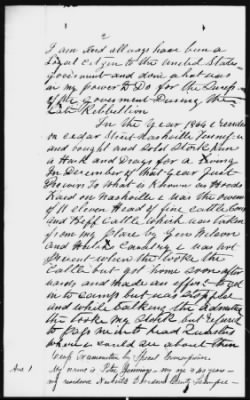 2
I am and allways have been a
Loyal Citizen to the United States
Goverment and done what was
in my power to Do for the
of the Goverment During the
Late Rebbellion.
In the year 1864 I resided
on Cedar Street Nashville Tennessee
and bought and Sold Stock
a Hack and Drays for a living
In December of that year Just
to What is Known as Hoods
Raid on Nashville I was the owner
of 11 eleven Head of fine Cattle Cows
and Beff Cattle which was taken
from my place by Gen Wilson
and Cavalry I was not
present when the tooke the
Cattle but got home soon after
wards and made an effort to get
in to Camp but was stopped
and while talking the admitted
the tooke my Stock but refused
to pass me to head Quarters
where I could see about them
by Special Commissioner.
Ans 1 My name is Peter Jennings my age is years
my residence Nashville Davidson County Tennessee